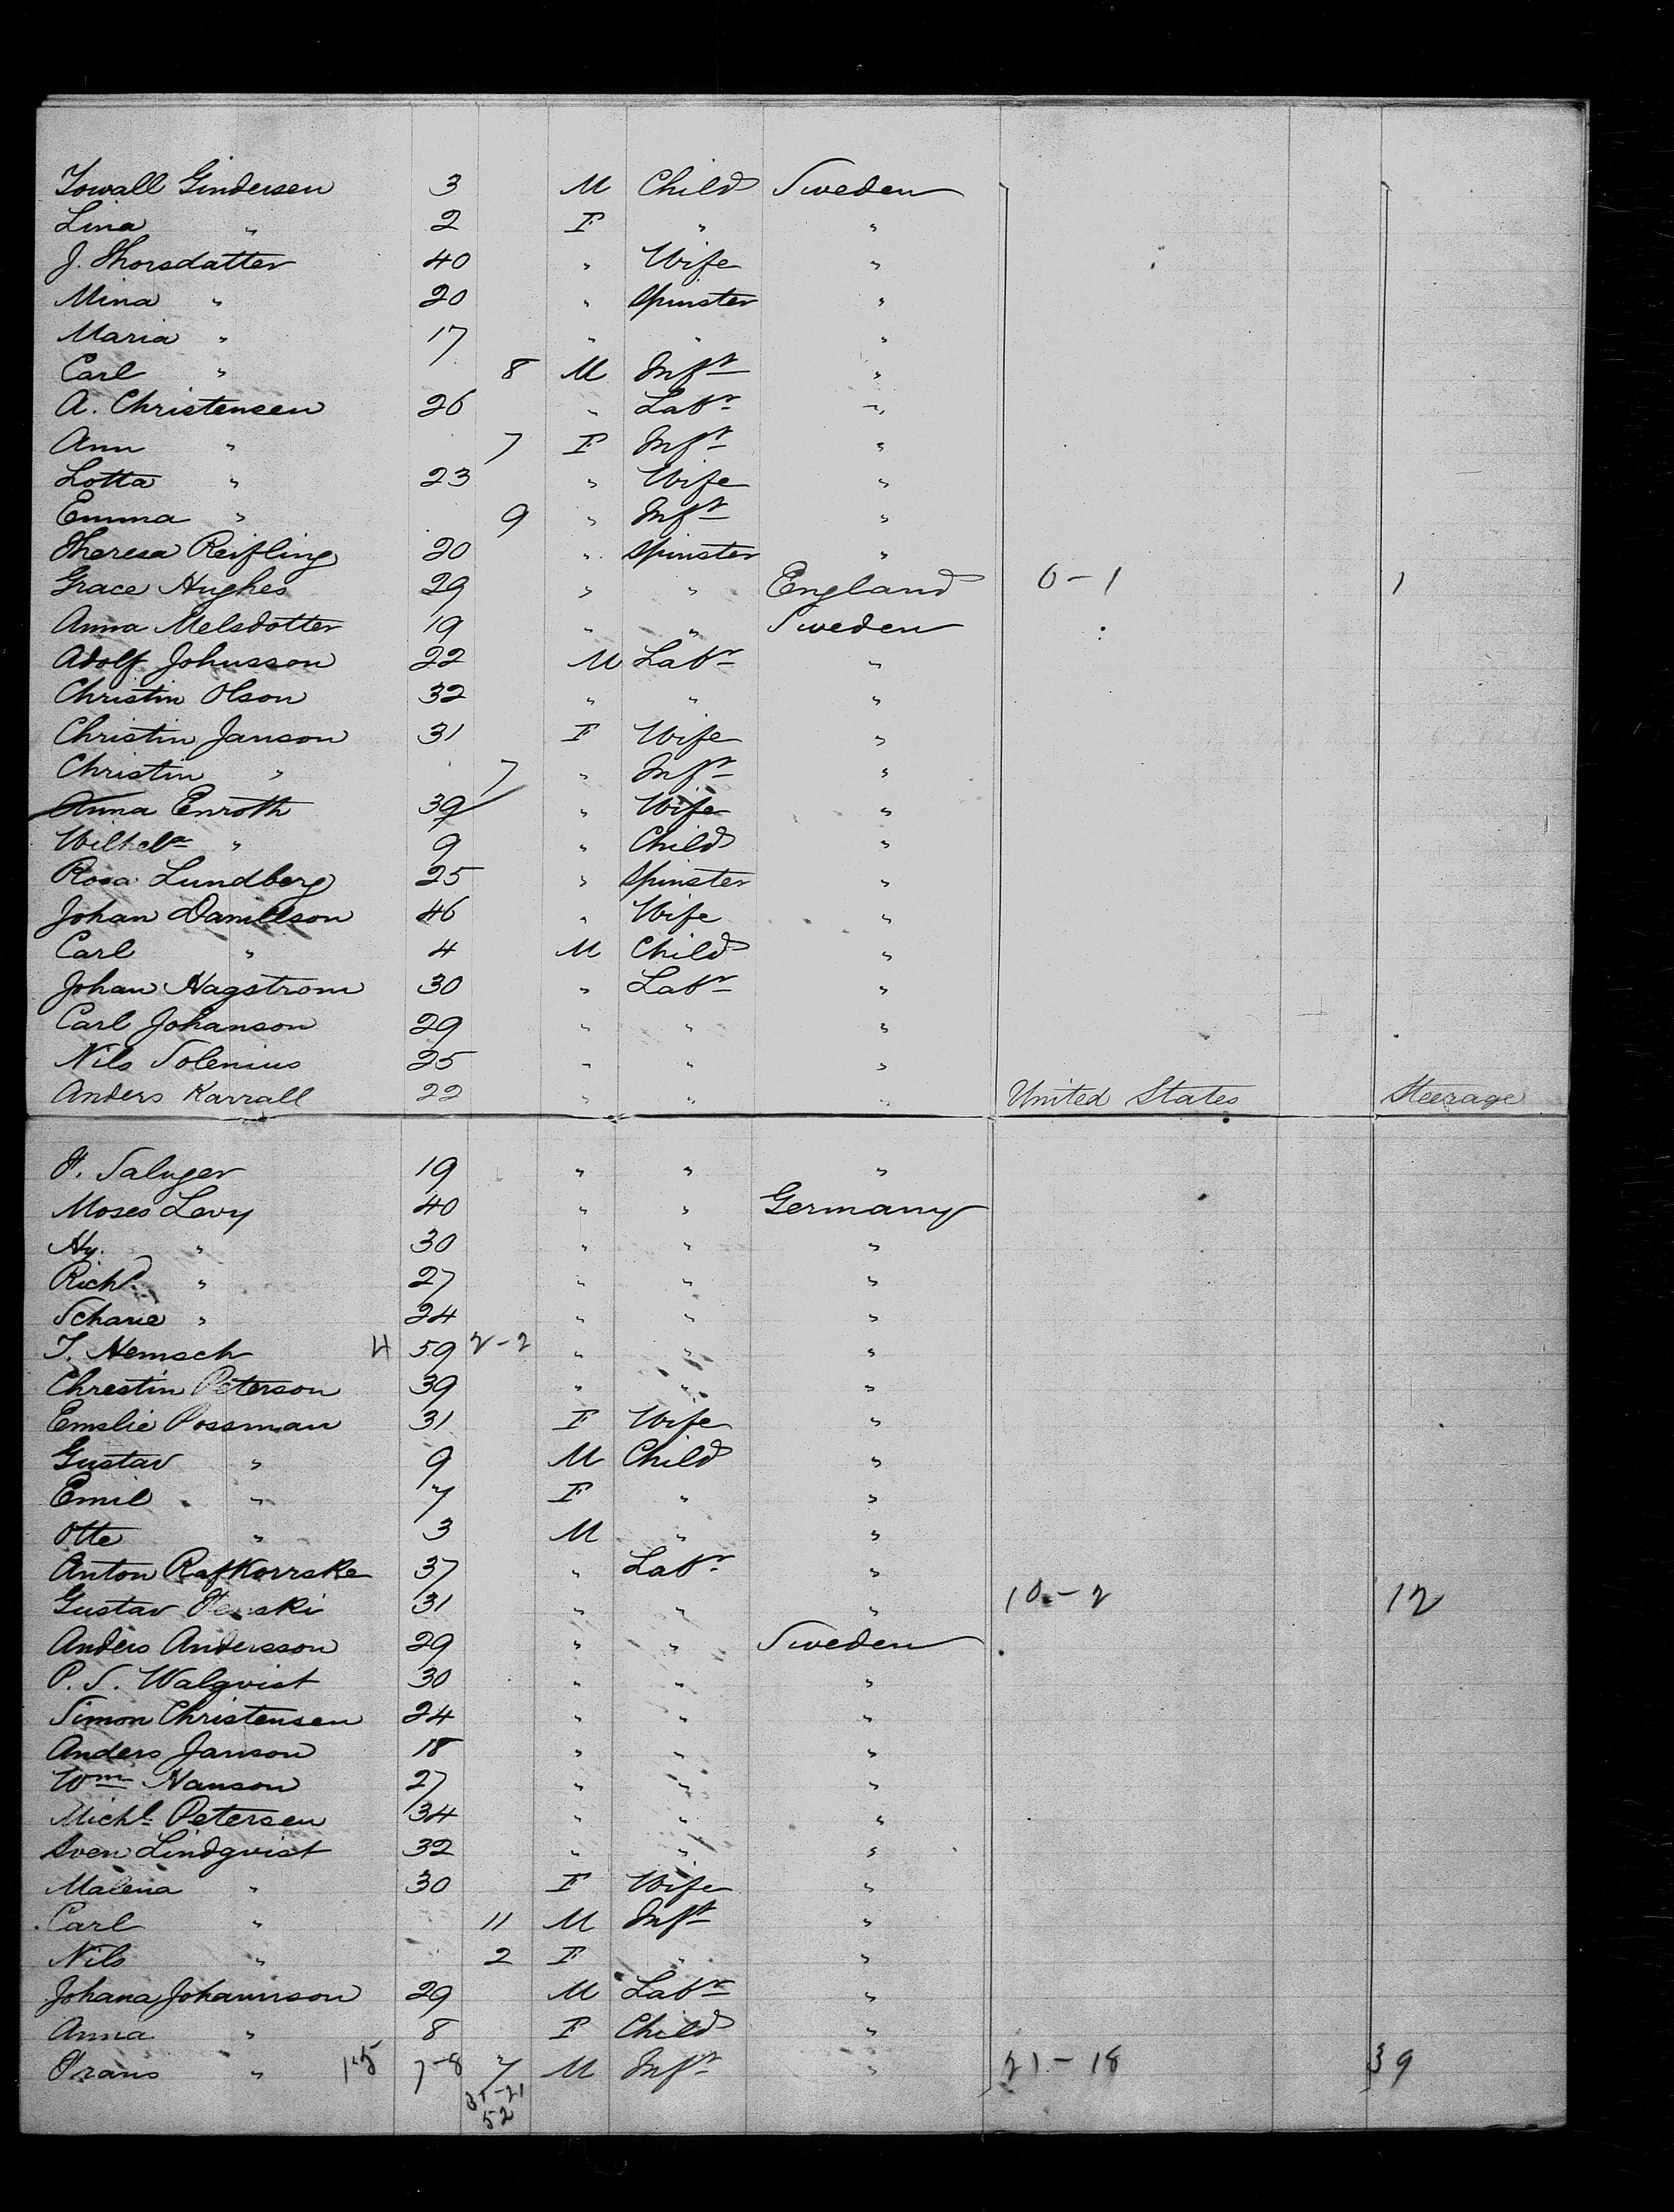 Towall Gindersen 3 M Child Sweden
Lina " 2 F " "
J. Thorsdatter 40 " Wife "
Mina " 20 " Spinster "
Maria " 17 " " "
Carl " 8 M Inft "
A. Christensen 26 " Labr "
Ann " 7 F Inft "
Lotta " 23 " Wife "
Emma " 9 " Inft "
Theresa Reifling 20 " Spinster "
Grace Hughes 29 " " England 0-1 1
Anna Melsdotter 19 " " Sweden
Adolf Johnsson 22 M Labr "
Christin Olson 32 " " "
Christin Janson 31 F Wife "
Christin " 7 " Inft "
Anna Enroth 39 " Wife "
Wilhelm " 9 " Child "
Rosa Lundberg 25 " Spinster "
Johan Danillson 46 " Wife "
Carl " 4 M Child "
Johan Hagstrom 30 " Labr "
Carl Johanson 29 " " "
Nils Solenius 25 " " "
Anders Karrall 22 " " " United States Steerage
F. Saluger 19 " " "
Moses Levy 40 " " Germany
Hy. " 30 " " "
Richd. " 27 " " "
Scharie " 24 " " "
T. Hemsch 4 59 2-2 " " "
Chrestin Peterson 39 " " "
Emelie Possman 31 F Wife "
Gustav " 9 M Child "
Emil " 7 F " "
Otte " 3 M " "
Anton Rafkorrske 37 " Labr "
Gustav 31 " " " 10-2 12
Anders Andersson 29 " " Sweden
P. S. Walqvist 30 " " "
Simon Christensen 24 " " "
Anders Janson 18 " " "
Wm Hanson 27 " " "
Michl Petersen 34 " " "
Sven Lindqvist 32 " " "
Malena " 30 F Wife "
Carl " 11 M Inft "
Nils " 2 F " "
Johana Johannson 29 M Labr "
Anna " 8 F Child "
Frans " 15 7-8 7 M Inft " 21-18 39
31-21
52